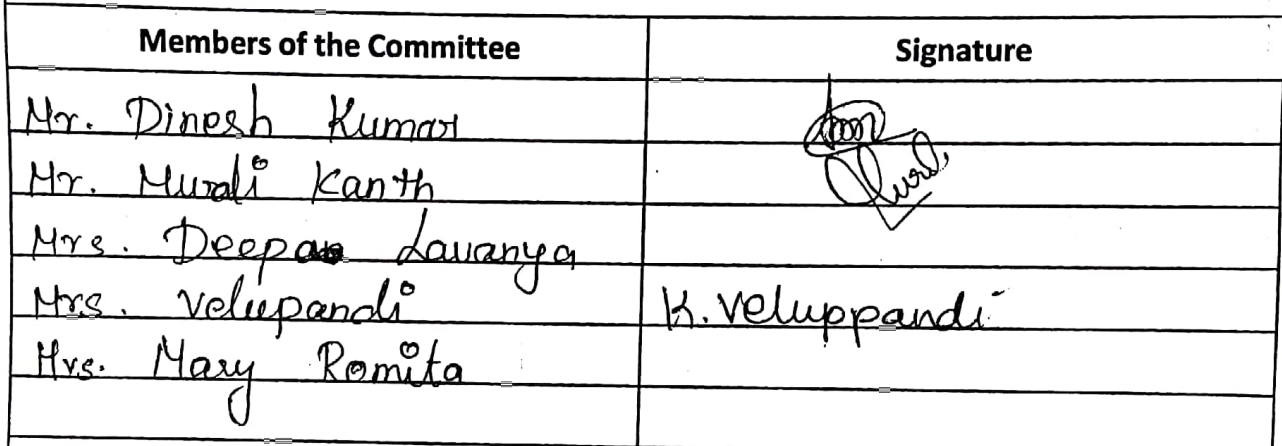 Members of the Committee Signature
Mr. Dinesh Kumar
Mr. Murali Kanth
Mrs. Deepa Lavanya
Mrs. Velupandi K. Veluppandi
Mrs. Mary Romita